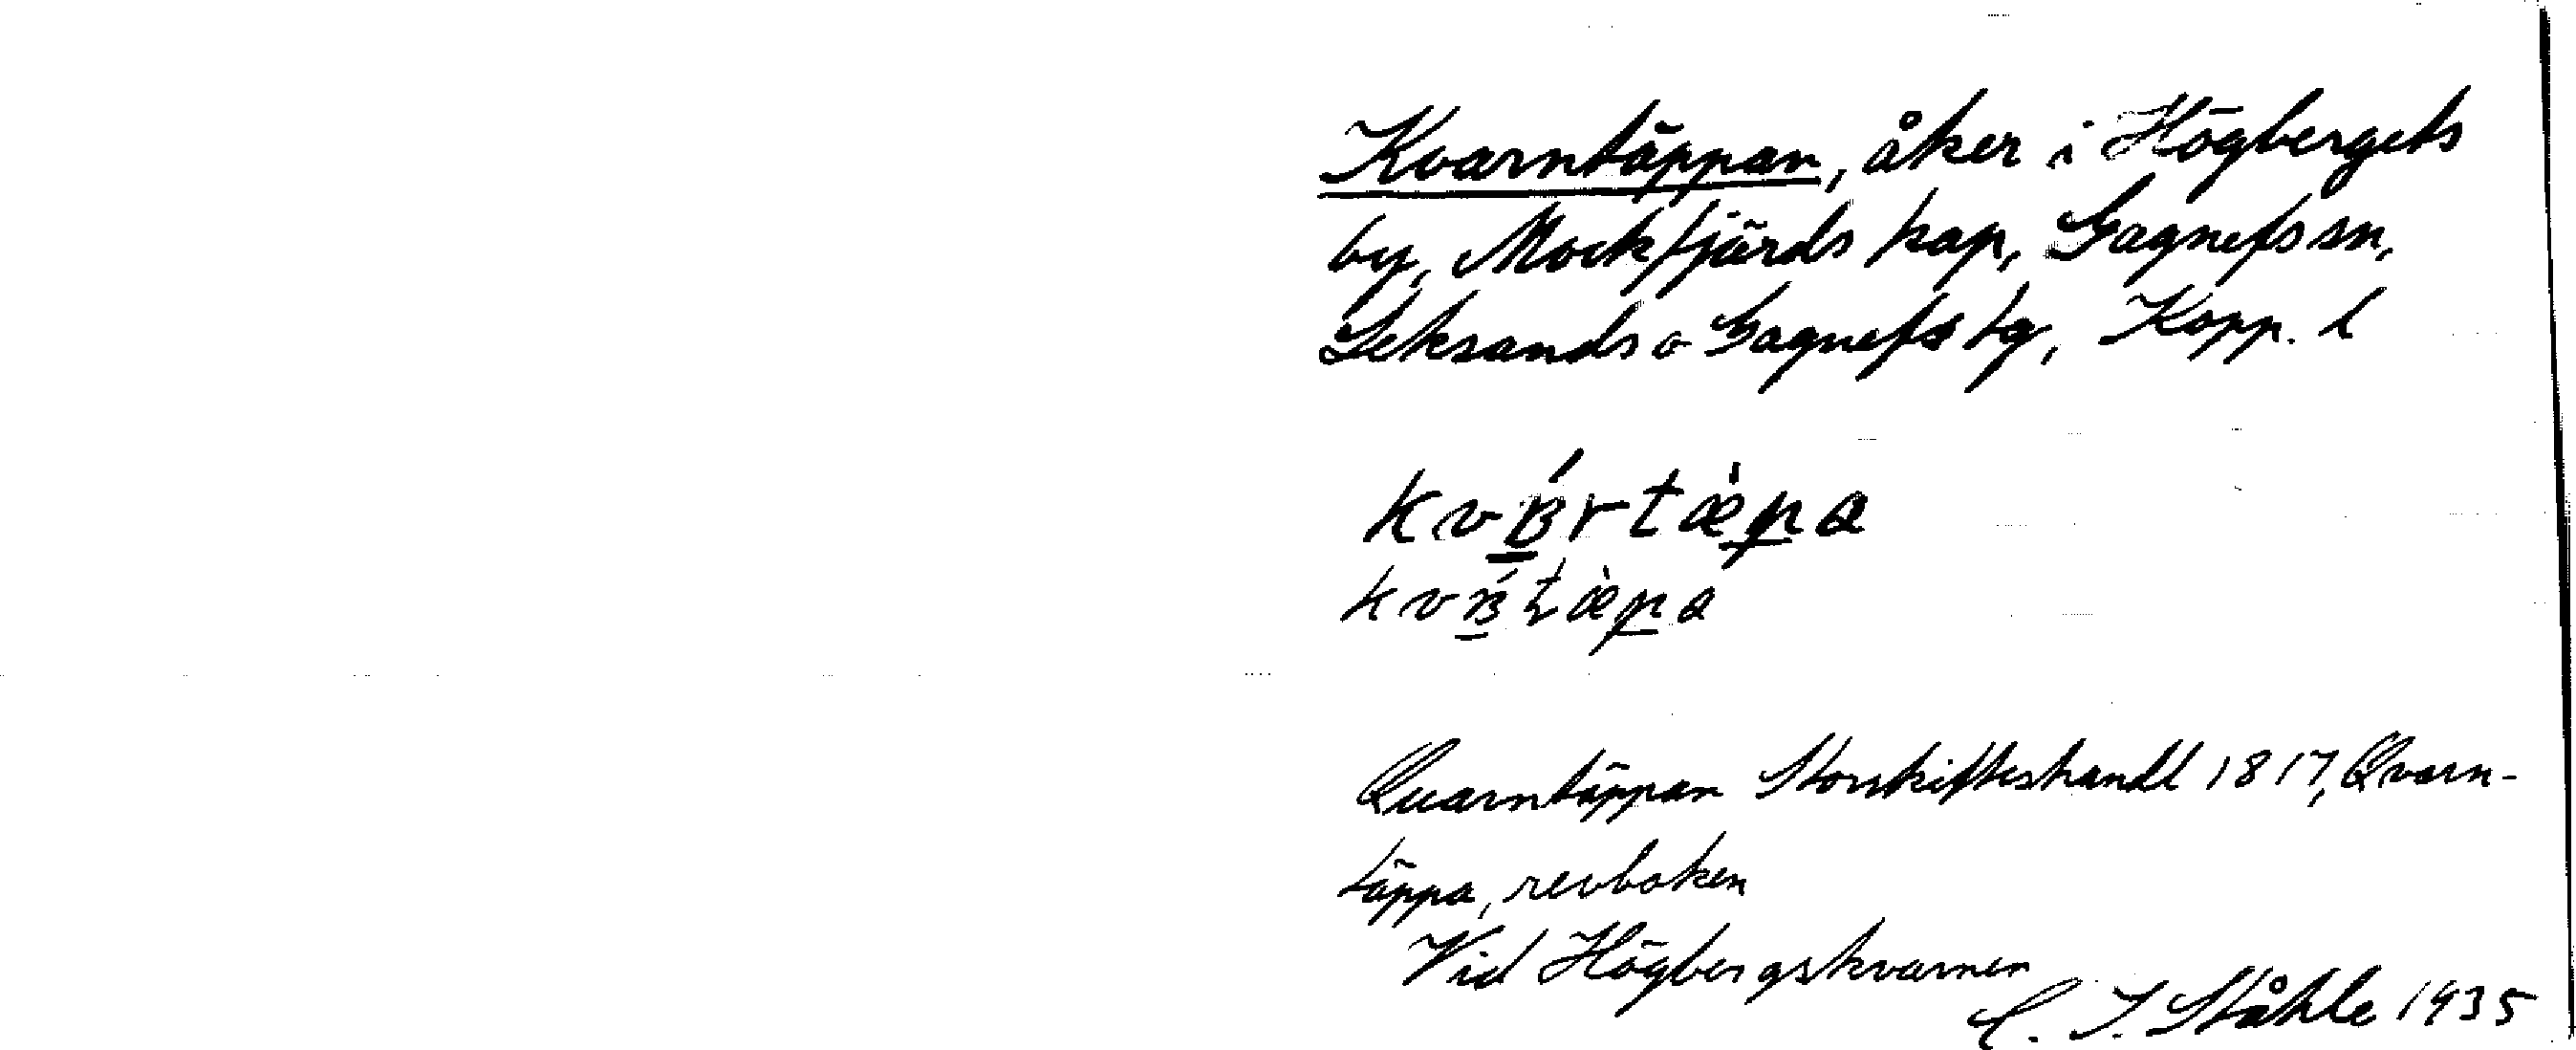 Kvarntäppan, åker i Högbergets
by, Mockfjärds kap, Gagnefs sn,
Leksands o Gagnefs tg, Kopp. l
Quarntäppan Storskifteshandl 1817, Qvarn-
täppa, revboken
Vid Högbergskvarnen
C. I. Ståhle 1935